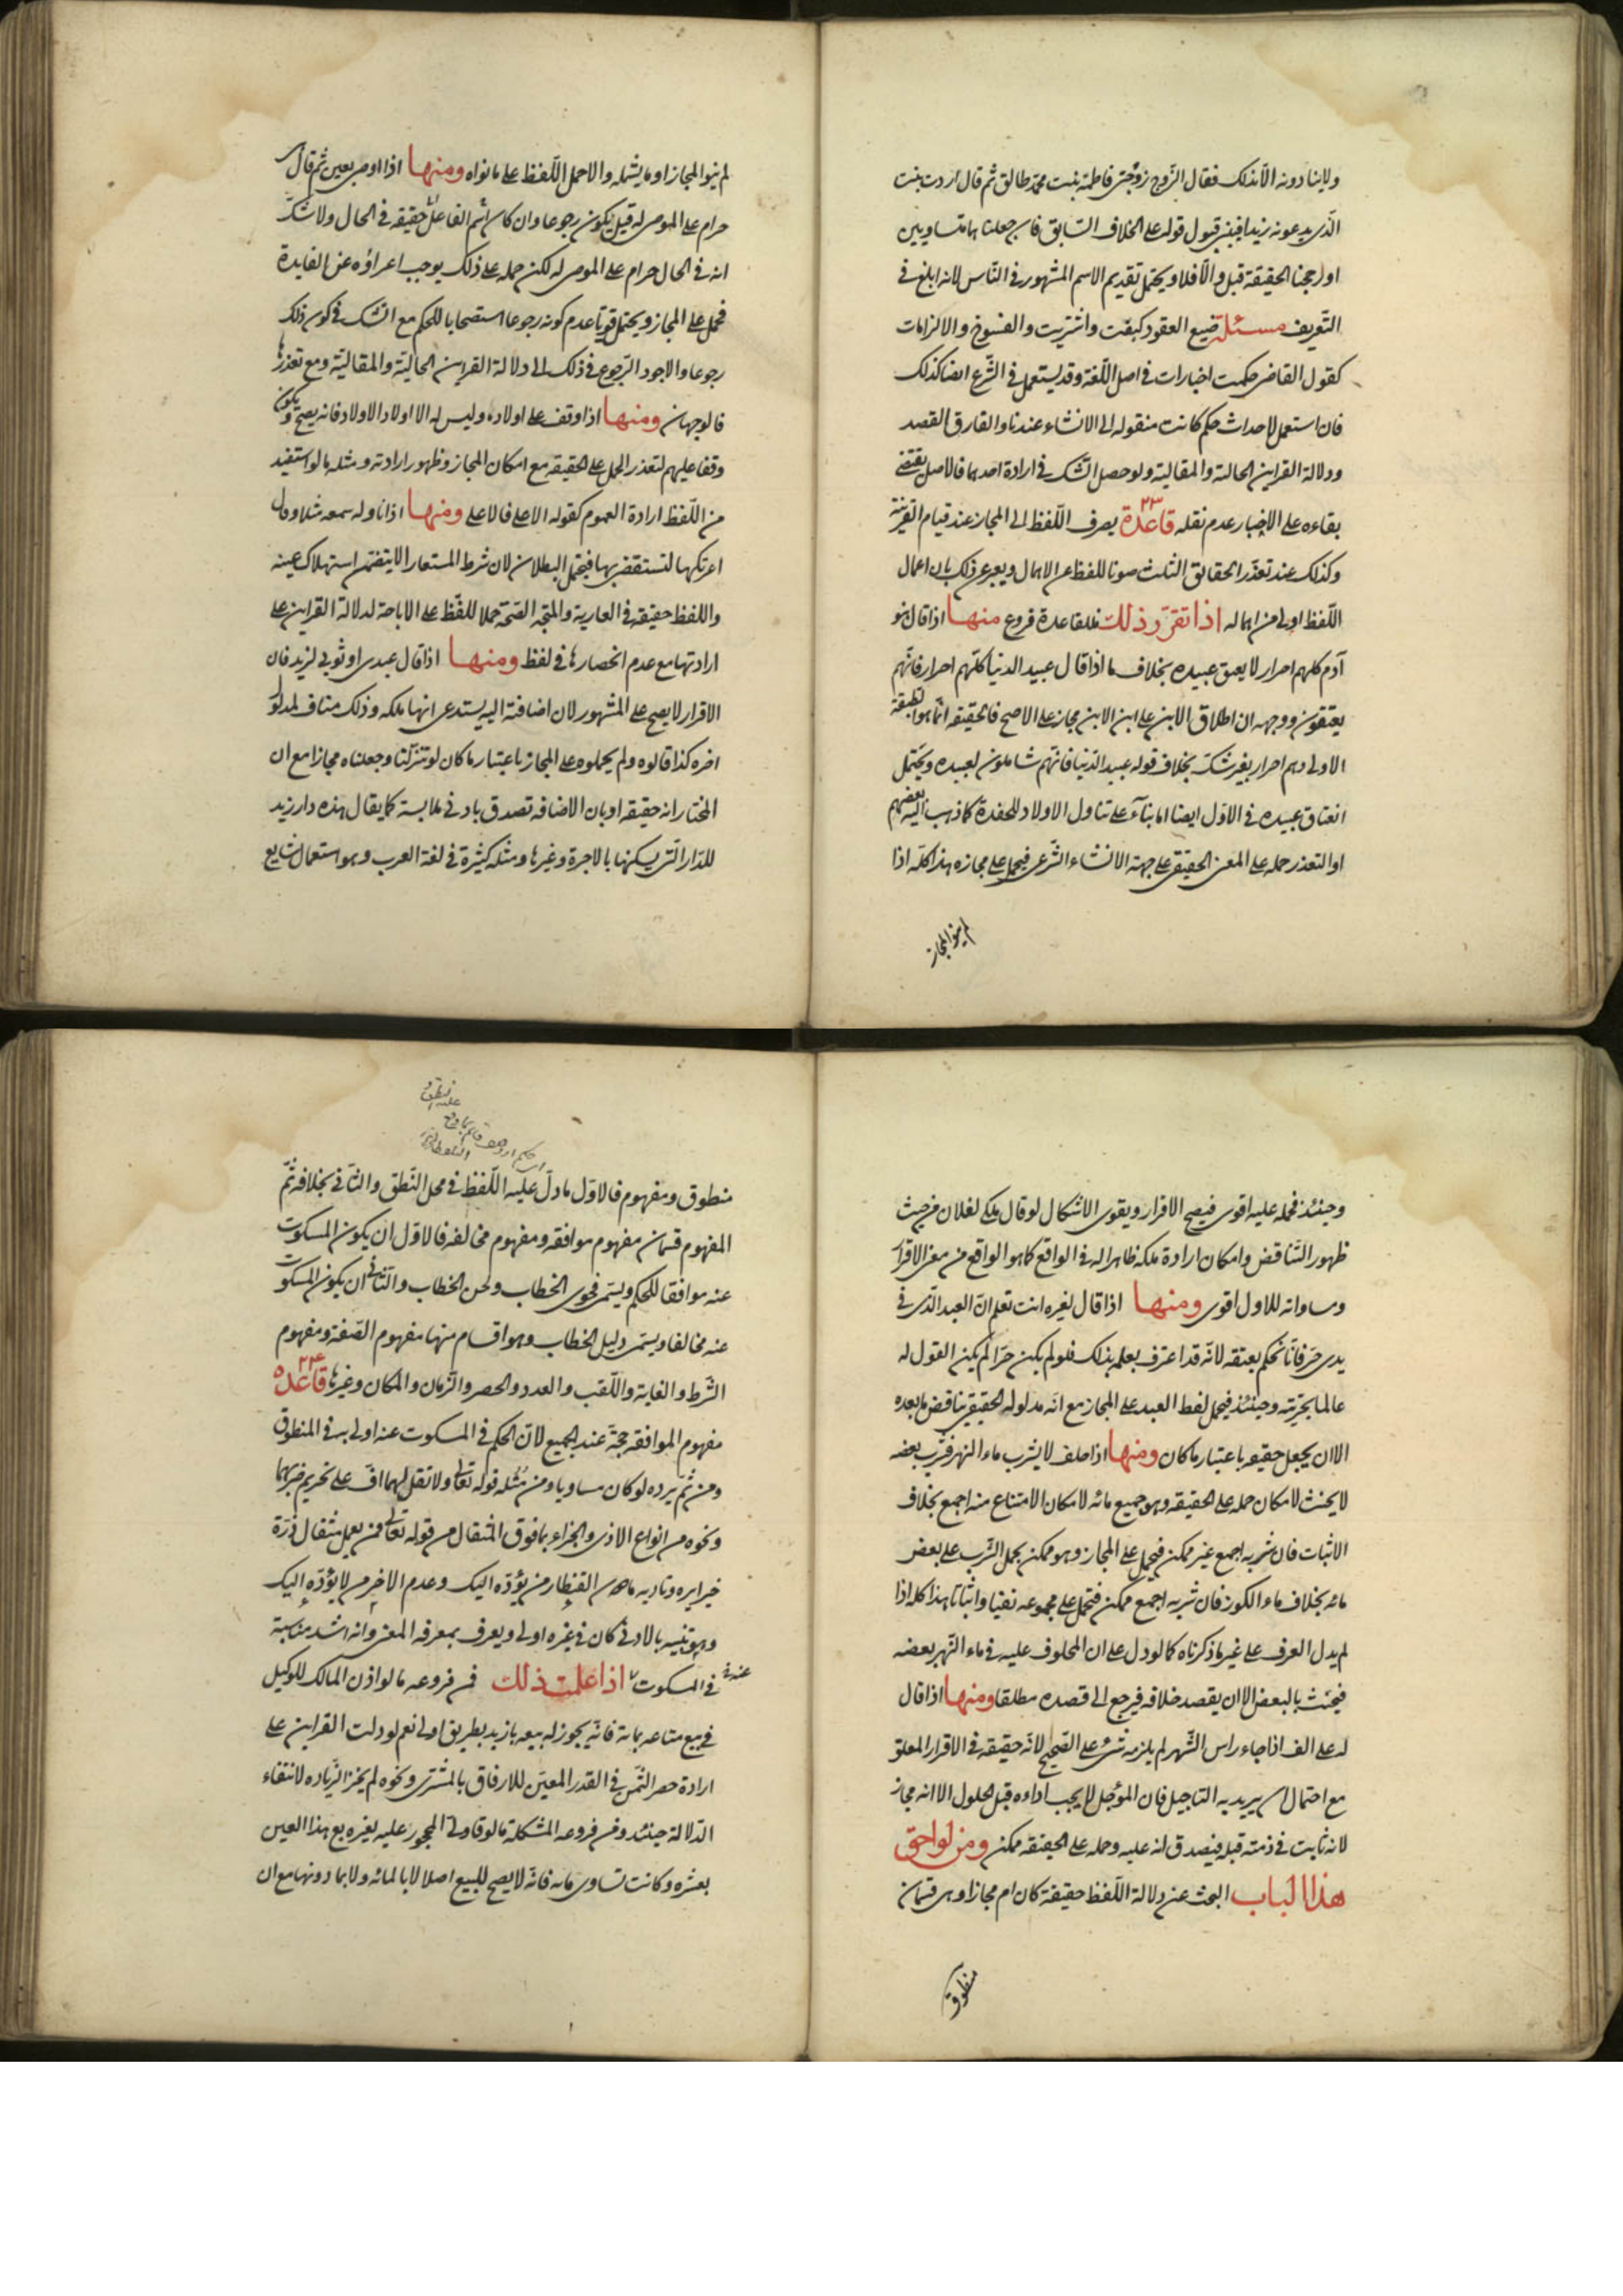 ولا ينادونه الا بذلك فقال الزوج زوجتى فاطمة بنت محمد طالق ثم قال اردت بنت
الّذى يدعونه زيدا ففى قبول قوله على الخلاف السّابق فان جعلناهما متساويين
او رجحنا الحقيقة قبل والّا فلا ويحتمل تقديم الاسم المشهور فى النّاس لانه ابلغ فى
التّعريف مسئلة صيغ العقود كبعت واشتريت والفسوخ والالزامات
كقول القاضى حكمت اخبارات فى اصل اللّغة وقد يستعمل فى الشّرع ايضا كذلك
فان استعمل لاحداث حكم كانت منقوله الى الانشاء عندنا والفارق القصد
ودلالة القراين الحالية والمقالية ولو حصل الشّك فى ارادة احدهما فالاصل يقتضى
بقاءه على الاخبار عدم نقله قاعدة ٢٣ يصرف اللّفظ الى المجاز عند قيام القرينة
وكذلك عند تعذّر الحقايق الثلث صونا للفظ عن الاهمال ويعبر عن ذلك بان اعمال
اللّفظ اولى من اهماله اذا تقرر ذلك فللقاعدة فروع منها اذا قال بنو
آدم كلهم احرار لا يعتق عبيده بخلاف ما اذا قال عبيد الدنيا كلّهم احرار فانّهم
يعتقون ووجهه ان اطلاق الابن على ابن الابن مجاز على الاصح فالحقيقه انّما هو الطبقة
الاولى وهم احرار بغير شكّ بخلاف قوله عبيد الدّنيا فانّهم شاملون لعبيده ويحتمل
انعتاق عبيده فى الاوّل ايضا اما بناءً على تناول الاولاد للحفدة كما ذهب اليه بعضهم
او لتعذر حمله على المعنى الحقيقى على جهة الانشاء الشّرعى فيحمل على مجازه هذا كلّه اذا
لم ينو المجاز
لم ينو المجاز او ما يشمله والا حمل اللّفظ على ما نواه ومنها اذا اوصى بعين ثم قال هى
حرام على الموصى له قيل يكون رجوعا وان كان اسم الفاعل حقيقه فى الحال ولا شكّ
انه فى الحال حرام على الموصى له لكن حمله على ذلك يوجب اعراؤه عن الفايدة
فحمل على المجاز ويحتمل قويّا عدم كونه رجوعا استصحابا للحكم مع الشك فى كون ذلك
رجوعا والاجود الرّجوع فى ذلك الى دلالة القراين الحاليّة والمقاليّة ومع تعذرها
فالوجهان ومنها اذا وقف على اولاده وليس له الا اولاد الاولاد فانه يصح ويكون
وقفا عليهم لتعذر الحمل على الحقيقه مع امكان المجاز وظهور ارادته ومثله ما لو استفيد
من اللّفظ ارادة العموم كقوله الاعلى فالاعلى ومنها اذا ناوله سمعه مثلا وقال
اعرتكها لتستقضى بها فيحتمل البطلان لان شرط المستعار الا يتضمن استهلاك عينه
واللفظ حقيقه فى العارية والمتجه الصّحة حملا للفّظ على الاباحة لدلالة القراين على
ارادتها مع عدم انحصارها فى لفظ ومنها اذا قال عبدى او ثوبى لزيد فان
الاقرار لا يصح على المشهور لان اضافته اليه يستدعى انها ملكه وذلك مناف لمدلول
اخره كذا قالوه ولم يحملوه على المجاز باعتبار ما كان لو تنزلنا وجعلناه مجازا مع ان
المختار انه حقيقه او بان الاضافه تصدق بادنى ملابسة كما يقال هذه دار زيد
للدّار الّتى يسكنها بالاجرة وغيرها ومثله كثيرة فى لغة العرب وهو استعمال شايع
وحينئذ فحمله عليه اقوى فيصح الاقرار ويقوى الاشكال لو قال ملكى لفلان من حيث
ظهور التّناقض وامكان ارادة ملكه ظاهرا له فى الواقع كما هو الواقع من معنى الاقرار
ومساواته للاول اقوى ومنها اذا قال لغيره انت تعلم انّ العبد الّذى فى
يدى حرّ فانّا نحكم بعتقه لانّه قد اعترف بعلمه بذلك فلو لم يكن حرّا لم يكن القول له
عالما بحريّته وحينئذ فيحمل لفظ العبد على المجاز مع انّه مدلوله الحقيقى يناقض ما بعده
الا ان يجعل حقيقه باعتبار ما كان ومنها اذا حلف لا يشرب ماء النهر فشرب بعضه
لا يحنث لامكان حمله على الحقيقه وهو جميع مائه لامكان الامتناع منه اجمع بخلاف
الاثبات فان شربه اجمع غير ممكن فيحمل على المجاز وهو ممكن يحمل الشّرب على بعض
مائه بخلاف ماء الكوز فان شربه اجمع ممكن فتحمل على مجموعه نفيا واثباتا هذا كله اذا
لم يدل العرف على غير ما ذكرناه كما لو دل على ان المحلوف عليه فى ماء النّهر بعضه
فيحنث بالبعض الا ان يقصد خلافه فيرجع الى قصده مطلقا ومنها اذا قال
له على الف اذا جاء راس الشّهر لم يلزمه شئ على الصّحيح لانّه حقيقه فى الاقرار المعلق
مع احتمال ان يريد به التاجيل فان المؤجل لا يجب اداءه قبل الحلول الا انه مجاز
لانه ثابت فى ذمته قبل فيصدق انه عليه وحمله على الحقيقه ممكن ومن لواحق
هذا الباب البحث عن دلالة اللّفظ حقيقة كان ام مجازا وهى قسمان
منطوق
منطوق ومفهوم فالاوّل ما دلّ عليه اللّفظ فى محل النّطق والثّانى بخلافه ثمّ
المفهوم قسمان مفهوم موافقه ومفهوم مخالفه فالاوّل ان يكون المسكوت
عنه موافقا للحكم ويسمى فحوى الخطاب ولحن الخطاب والثّانى ان يكون المسكوت
عنه مخالفا ويسمّى دليل الخطاب وهو اقسام منها مفهوم الصّفة ومفهوم
الشّرط والغاية واللّقب والعدد والحصر والزّمان والمكان وغيرها قاعده ٢٤
مفهوم الموافقه حجّة عند الجميع لانّ الحكم فى المسكوت عنه اولى به فى المنطوق
ومن ثمّ يرده لو كان مساويا ومن مثله قوله تعالى ولا تقل لهما افّ على تحريم ضربهما
ونحوه من انواع الاذى والجزاء بما فوق المثقال من قوله تعالى فمن يعمل مثقال ذرّة
خيرا يره وتاديه ما دون القنطار من يؤدّه اليك وعدم الاخر من لا يؤدّه اليك
وهو تنبيه بالادنى كان فى غيره اولى ويعرف بمعرفه المعنى وانه اشد مناسبة
فى المسكوت عنه اذا علمت ذلك فمن فروعه ما لو اذن المالك للوكيل
فى بيع متاعه بمائة فانّه يجوز له بيعه بازيد بطريق اولى نعم لو دلت القراين على
ارادة حصر الثّمن فى القدر المعيّن للارفاق بالمشترى ونحوه لم يجز الزّياده لانتفاء
الدّلالة حينئذ ومن فروعه المشكلة ما لو قال ولىّ المحجور عليه لغيره بع هذا العين
بعشره وكانت تساوى مائه فانّه لا يصح للبيع اصلا لا بالمائه ولا بما دونها مع ان